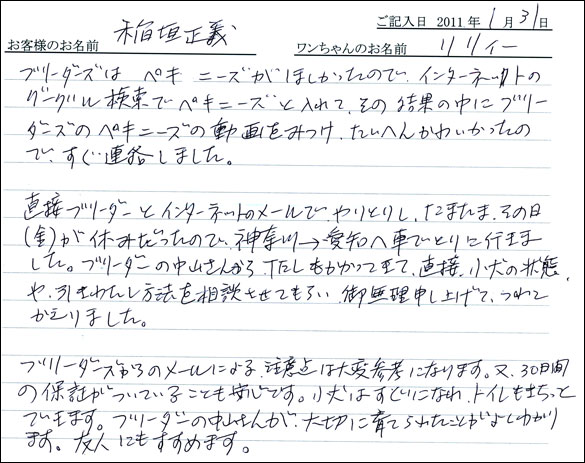 ご記入日 2011 年 1 月 31 日
お客様のお名前 稲垣正義 ワンちゃんのお名前 リリィー
ブリーダーズは ペキニーズがほしかったので、インターネットの
グーグル検索でペキニーズと入れて、その結果の中にブリー
ダーズのペキニーズの動画をみつけ、たいへんかわいかったの
で、すぐ連絡しました。
直接ブリーダーとインターネットのメールで、やりとりし、たまたま、その日
(金)が休みだったので、神奈川→愛知へ車でとりに行きま
した。ブリーダーの中山さんから、TELもかかって来て、直接、小犬の状態
や、引きわたし方法を相談させてもらい、御無理申し上げて、つれて
かえりました。
ブリーダーズからのメールによる、注意点は大変参考になります。又、30日間
の保証がついていることも安心です。小犬はすぐになれ、トイレもきちっと
できます。ブリーダーの中山さんが、大切に育てられたことがよくわかり
ます。友人にもすすめます。